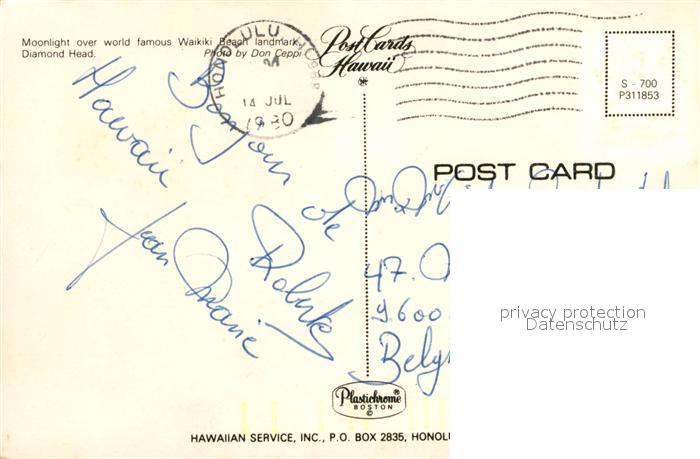 Moonlight over world famous Waikiki Beach landmark,
Diamond Head. Photo by Don Ceppi
HONOLULU
14 JUL
1980
Post Cards
Hawaii
S - 700
P311853
POST CARD
Bonjour de
Hawaii
Jean Marie
47.
9600
privacy protection
Datenschutz
Plastichrome®
BOSTON
©
HAWAIIAN SERVICE, INC., P.O. BOX 2835, HONOLU